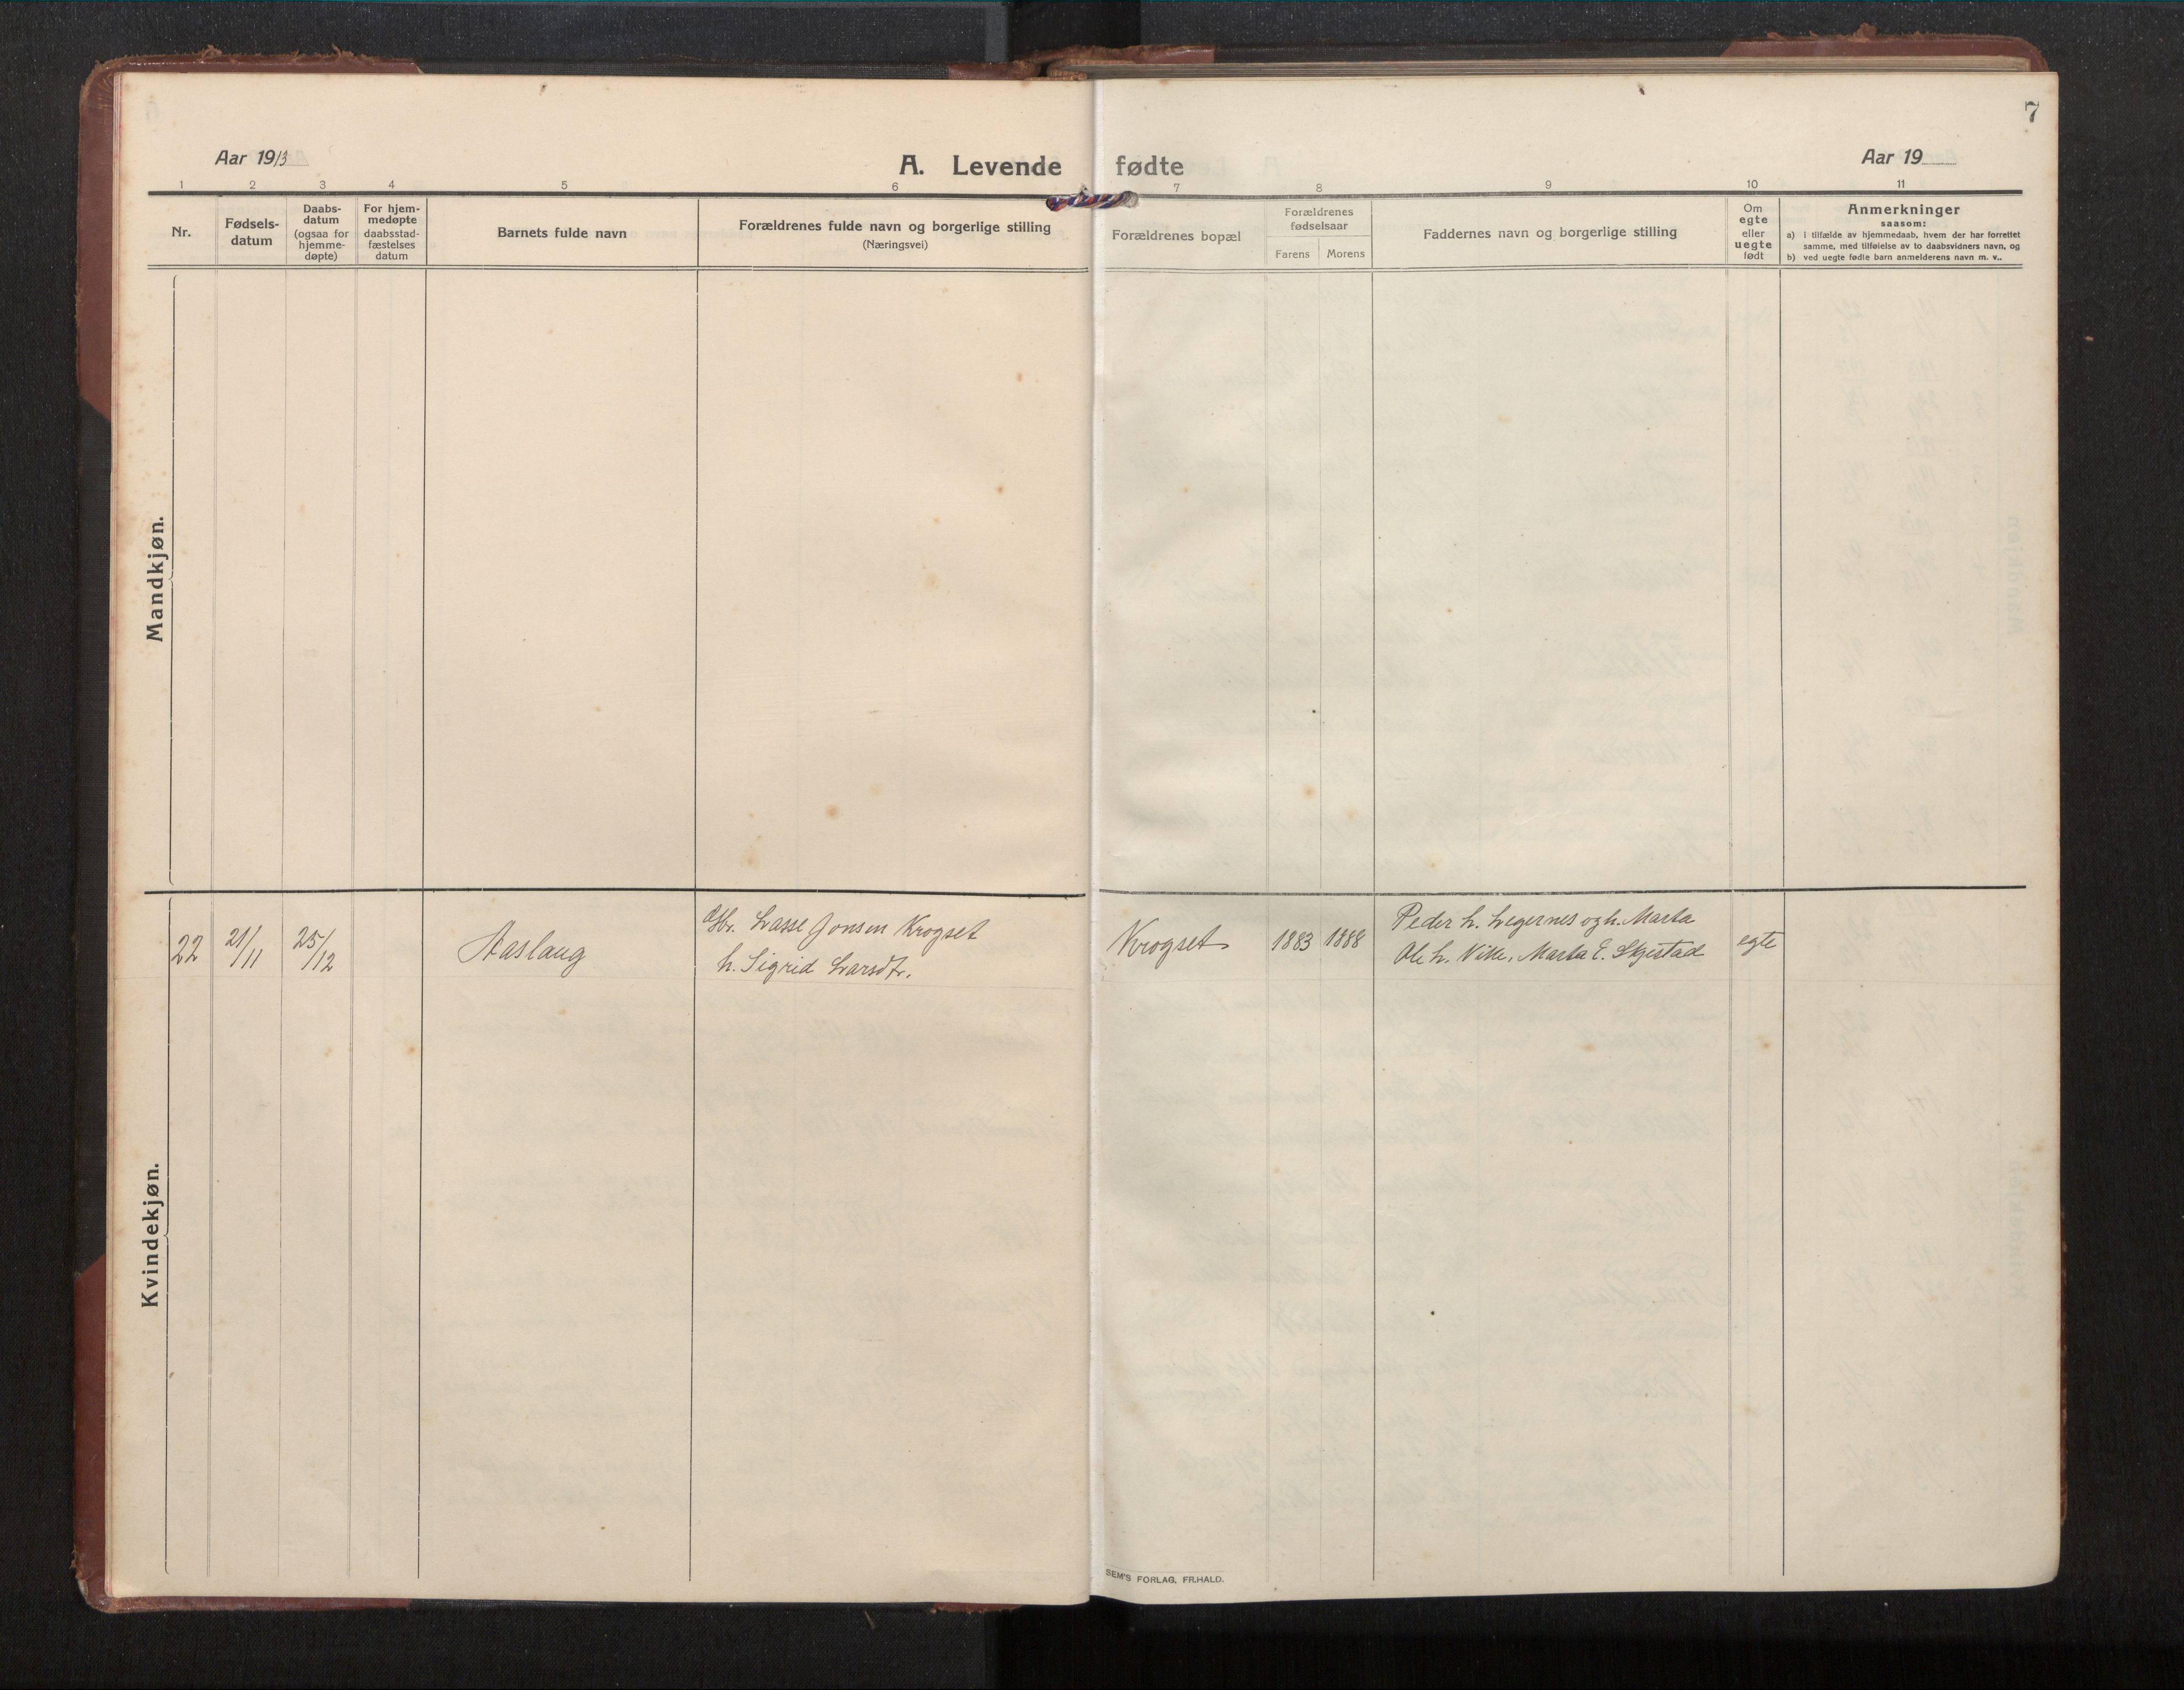 7
Aar 1913
A. Levende fødte
Aar 19
1 2 3 4 5 6 7 8 9 10 11
Nr.
Fødsels-
datum
Daabs-
datum
(ogsaa for
hjemme-
døpte)
For hjem-
medøpte
daabsstad-
fæstelses
datum
Barnets fulde navn
Forældrenes fulde navn og borgerlige stilling
(Næringsvei)
Forældrenes bopæl
Forældrenes
fødselsaar
Farens Morens
Faddernes navn og borgerlige stilling
Om
egte
eller
uegte
født
Anmerkninger
saasom:
a) i tilfælde av hjemmedaab, hvem der har forrettet
samme, med tilføielse av to daabsvidners navn, og
b) ved uegte fødte barn anmelderens navn m. v..
Mandkjøn.
Kvindekjøn.
22
21/11
25/12
Aaslaug
Gbr. Lasse Jonsen Krogset
h. Sigrid Larsdtr.
Krogset
1883 1888
Peder h. Legernes og h. Marta
Ole h. Vike, Marta E. Skjestad
egte
SEM'S FORLAG, FR.HALD.